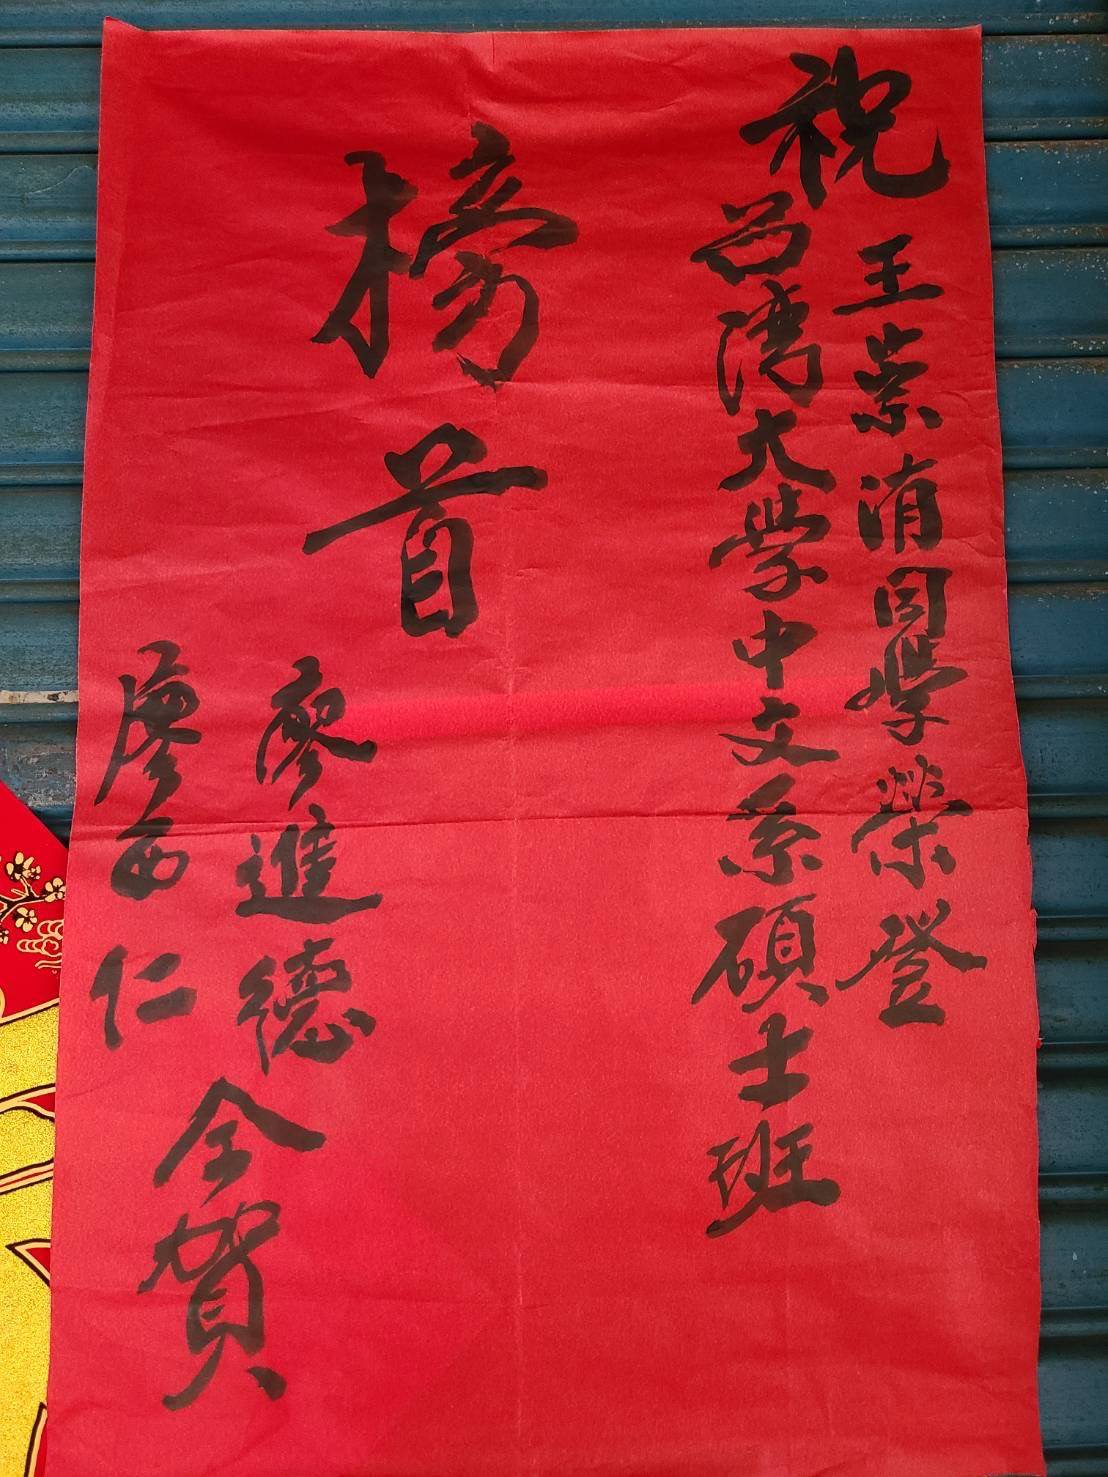 祝
王崇洧同学榮登
台湾大学中文系碩士班
榜首
廖進德
廖西仁
全賀